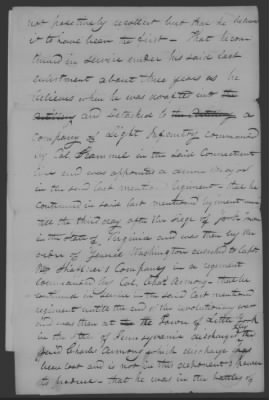 not positively recollect but that he believes
it to have been the first — That he con
tinued in service under his said last
enlistment about three years as he
believes when he was draughted out the
and detached to the
company of Light Infantry commanded
by Col. Scammel in the said Connecticut
line and was appointed a
in the said last mention regiment — that he
continued in said last mentioned regiment
till the third day after the siege of York Town
in the State of Virginia and was then by the
order of General Washington ordered to Capt
Company in a regiment
commanded by Col. Armong — that he
continued in service in the said last mentioned
regiment untill the end of the revolutionary war
and was then at the Town of Little York
in the State of Pennsylvania discharged by
Charles Armong which discharge has
been lost and is not in this deponent's power
to produce — that he was in the battles of